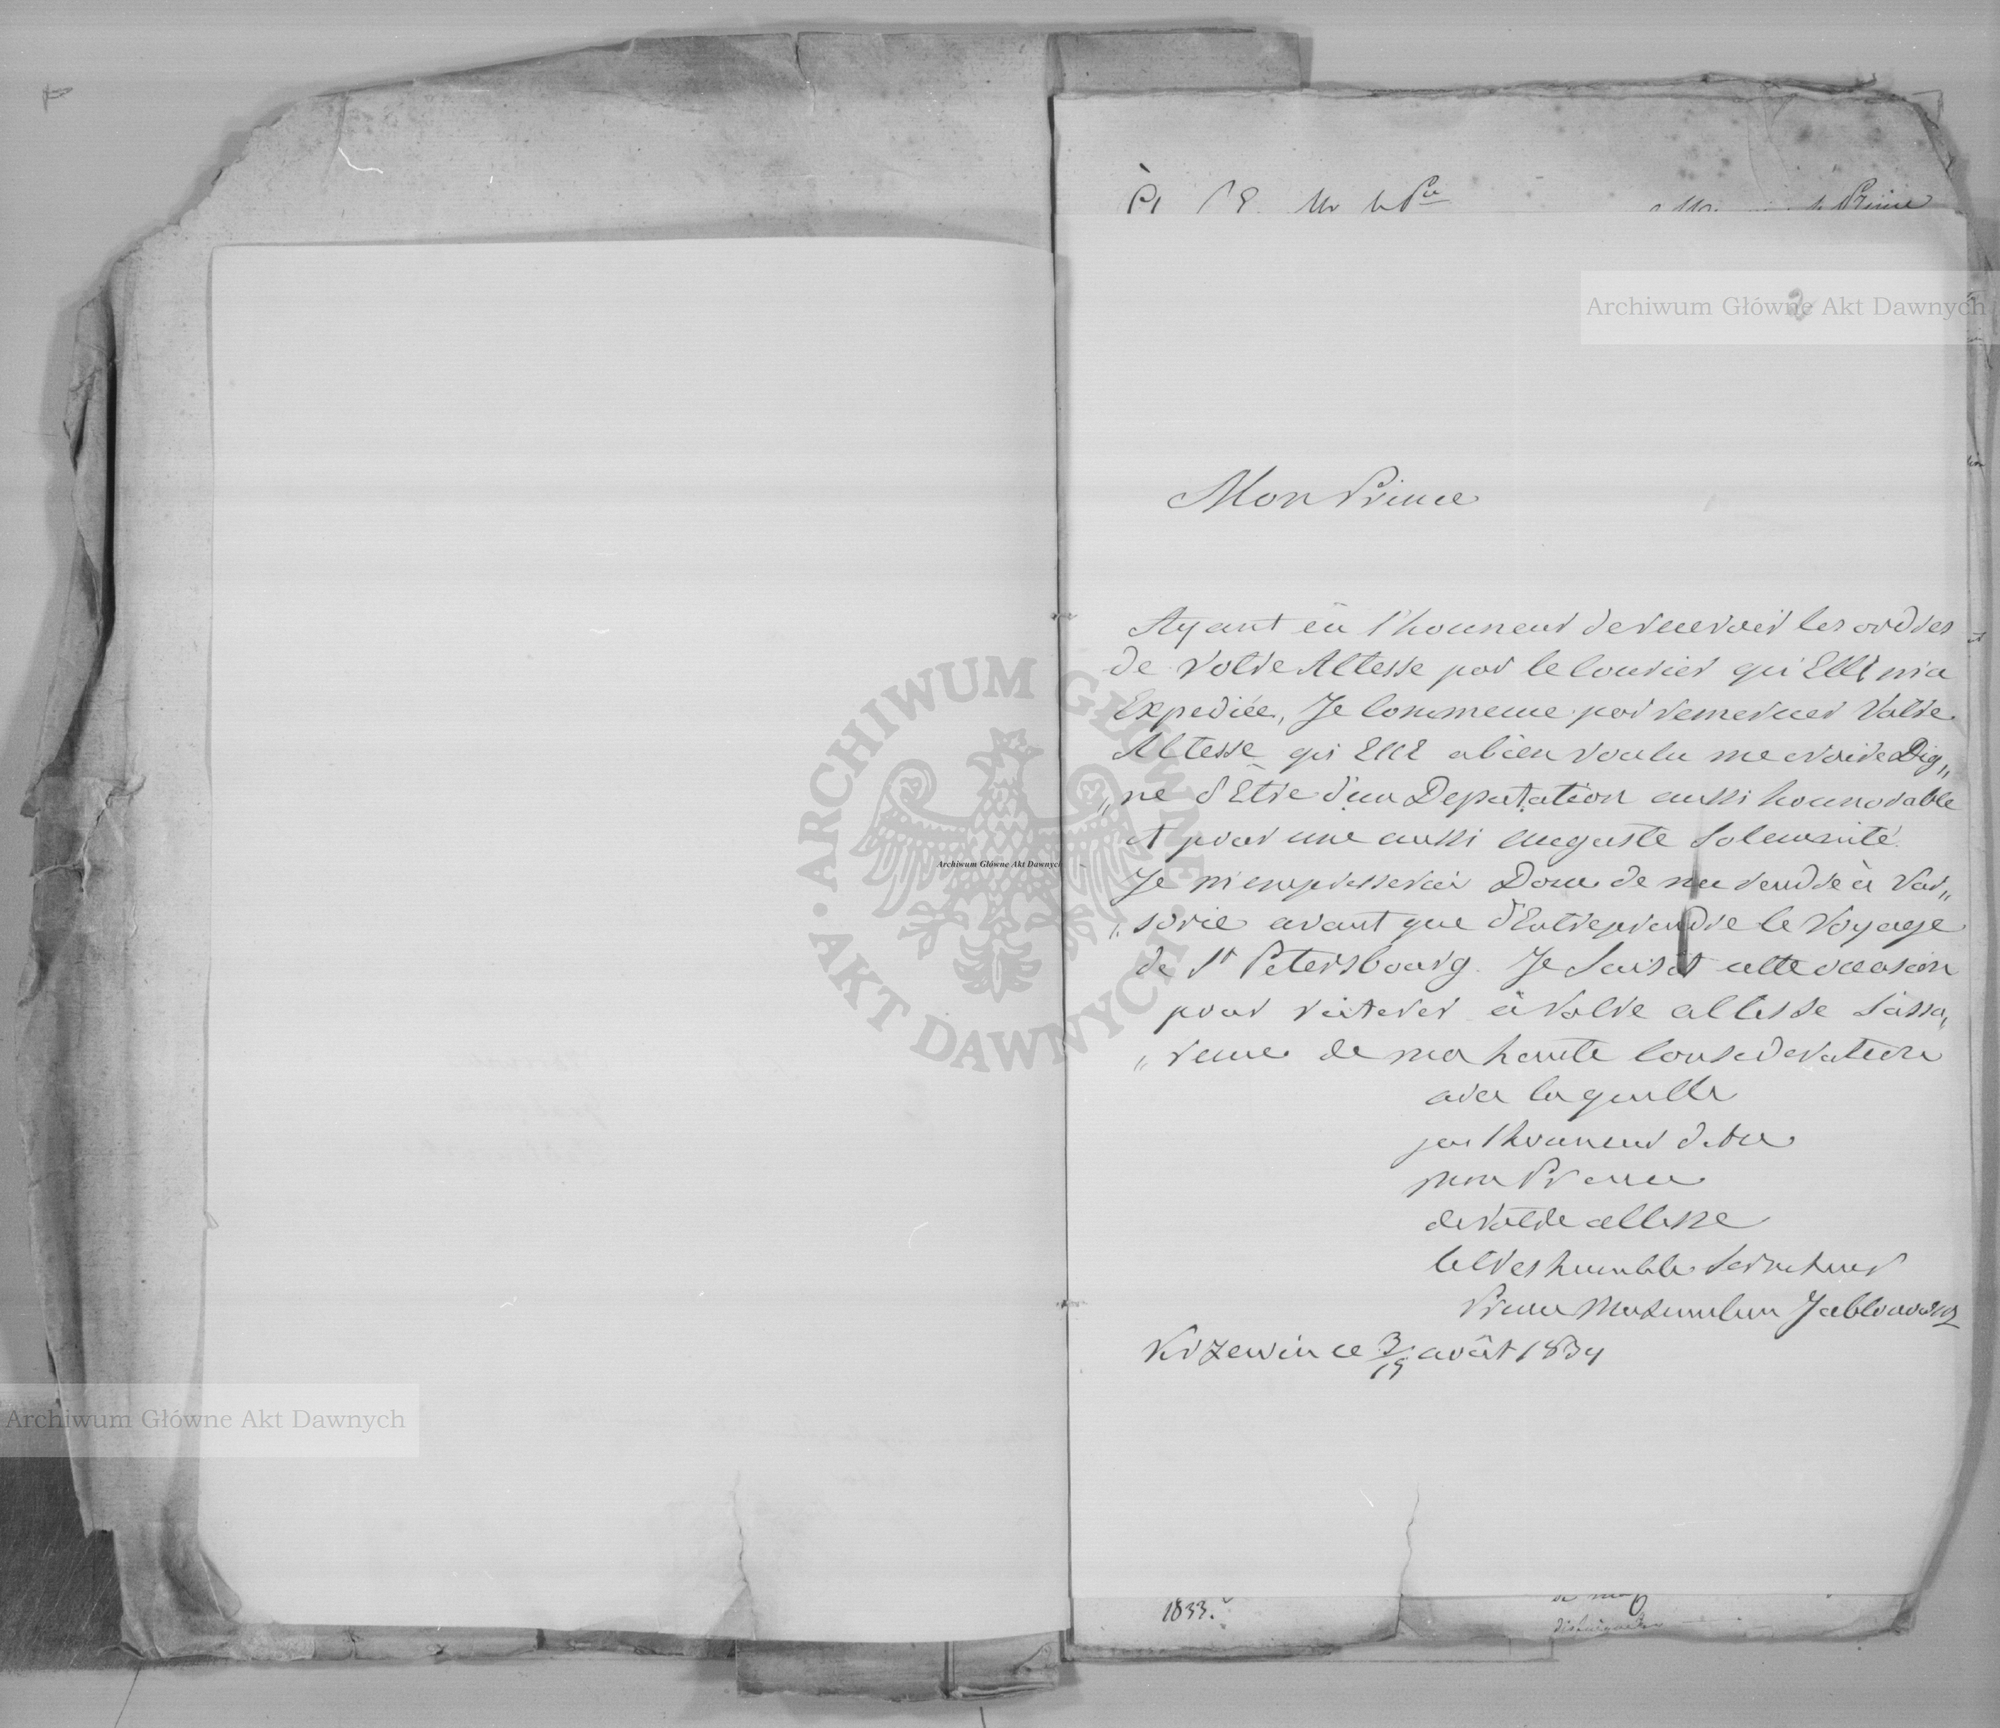 Mon Prince
Ayant eû l'honneur de recevoir les ordres
de Votre Altesse par le Courier qu'Elle m'a
Expediée, Je Commence par remercier Votre
Altesse qu'Elle a bien voulu me croire Dig„
„ne d'Etre d'un Deputation aussi honnorable
et pour une aussi auguste Solemnité.
Je m'empresserai Donc de me rendre à Var„
„sovie avant que d'Entreprendre le Voyage
de St Petersbourg. Je Saisit cette occasion
pour reiterer à Votre altesse l'assu„
„rence de ma haute Consideration
avec la quelle
jai l'honneur detre
mon Prince
de Votre altesse
le tres humble Serviteur
Prince Maximilien Jablonowski
Krzewin ce 3/15 août 1834
1833.
2
Archiwum Główne Akt Dawnych
Archiwum Główne Akt Dawnych
Archiwum Główne Akt Dawnych
ARCHIWUM GŁÓWNE
AKT DAWNYCH